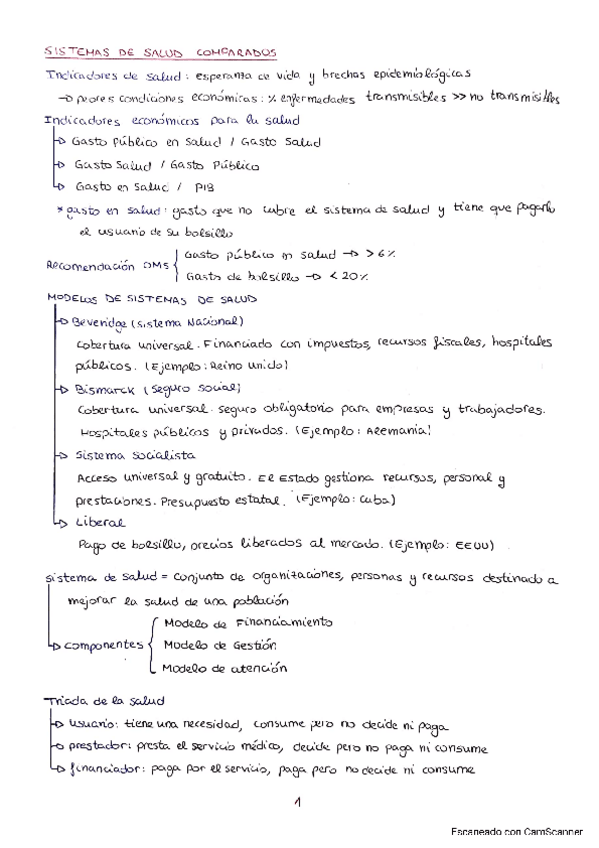 SISTEMAS DE SALUD COMPARADOS
Indicadores de salud: esperanza de vida y brechas epidemiológicas
→ peores condiciones económicas: % enfermedades transmisibles >> no transmisibles
Indicadores económicos para la salud
→ Gasto público en salud / Gasto Salud
→ Gasto Salud / Gasto Público
→ Gasto en Salud / PIB
* gasto en salud: gasto que no cubre el sistema de salud y tiene que pagarlo
el usuario de su bolsillo
Recomendación OMS { Gasto público en salud → > 6%
Gasto de bolsillo → < 20%
MODELOS DE SISTEMAS DE SALUD
→ Beveridge (Sistema Nacional)
Cobertura universal. Financiado con impuestos, recursos fiscales, hospitales
públicos. (Ejemplo: Reino Unido)
→ Bismarck (Seguro social)
Cobertura universal. seguro obligatorio para empresas y trabajadores.
Hospitales públicos y privados. (Ejemplo: Alemania)
→ Sistema Socialista
Acceso universal y gratuito. El Estado gestiona recursos, personal y
prestaciones. Presupuesto estatal. (Ejemplo: Cuba)
→ Liberal
Pago de bolsillo, precios liberados al mercado. (Ejemplo: EEUU)
Sistema de Salud = conjunto de organizaciones, personas y recursos destinado a
mejorar la salud de una población
→ Componentes { Modelo de Financiamiento
Modelo de Gestión
Modelo de atención
Triada de la salud
→ Usuario: tiene una necesidad, consume pero no decide ni paga
→ prestador: presta el servicio médico, decide pero no paga ni consume
→ financiador: paga por el servicio, paga pero no decide ni consume
1
Escaneado con CamScanner